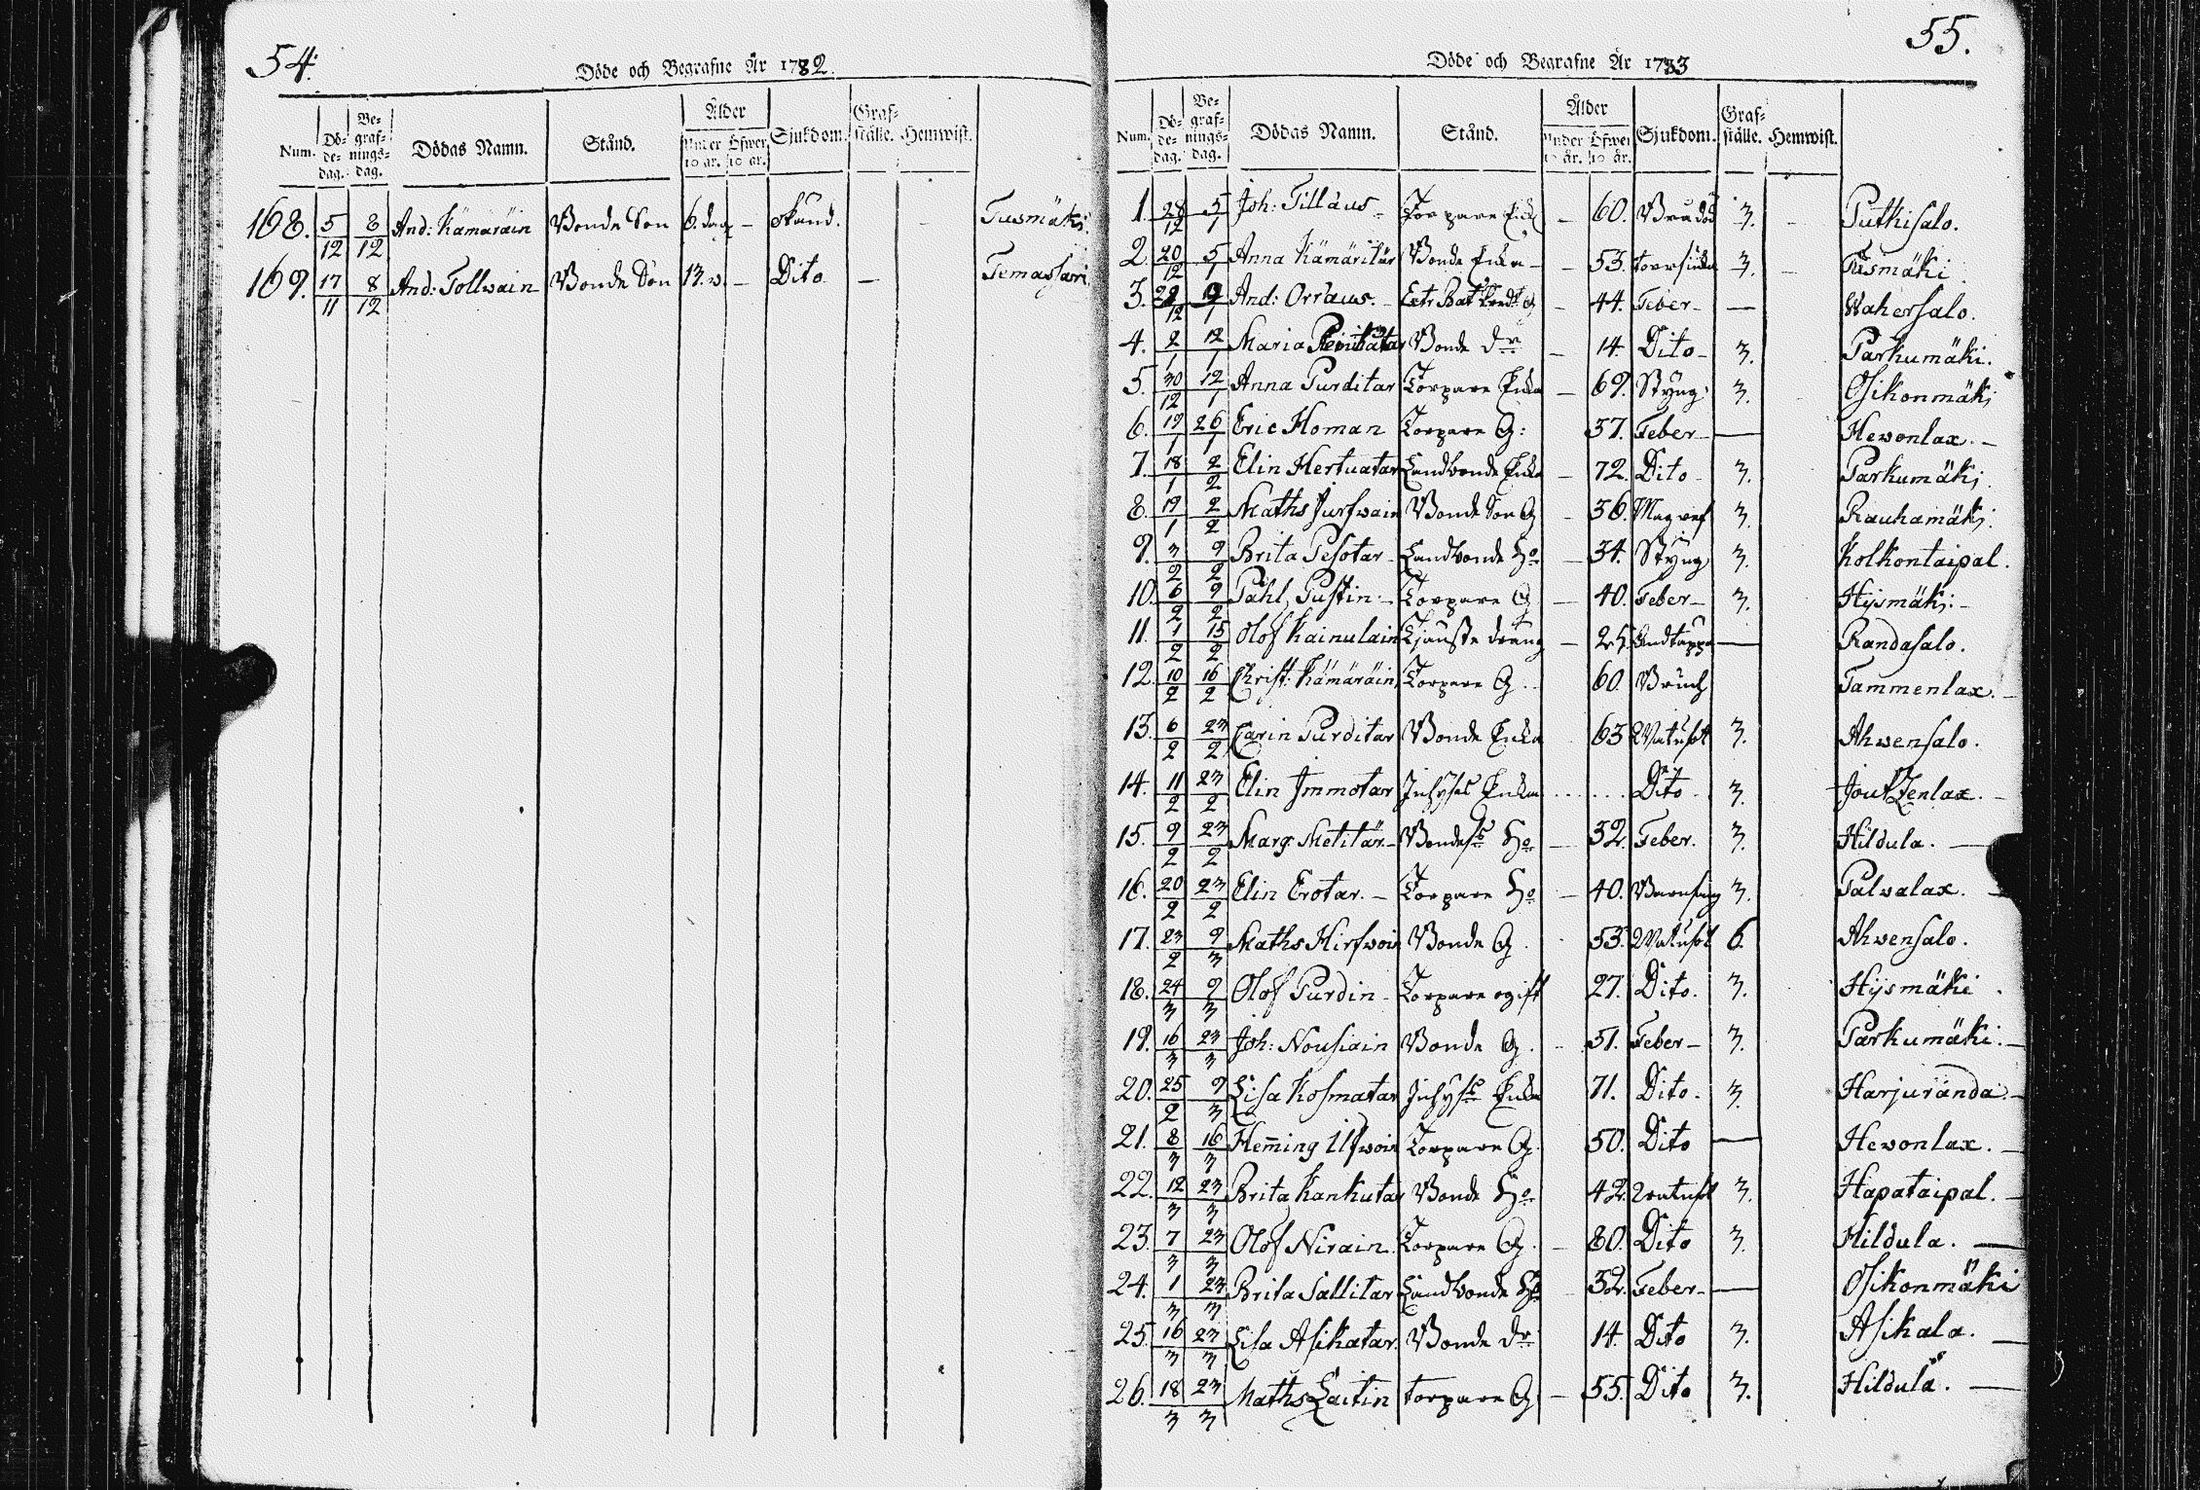 54.
Döde och Begrafne År 1782.
Num. Dö-de-dag. Be-graf-nings-dag. Dödas Namn. Stånd. Ålder Under 10 år. Öfwer 10 år. Sjukdom. Graf-ställe. Hemwist.
168. 5/12 8/12 And: Kämäräin Bonde Son 6. dag – okänd. – Tusmäki
169. 17/11 8/12 And: Tollwain Bonde Son 13. v. – Dito – Temassari
55.
Döde och Begrafne År 1783
Num. Dö-de-dag. Be-graf-nings-dag. Dödas Namn. Stånd. Ålder Under 10 år. Öfwer 10 år. Sjukdom. Graf-ställe. Hemwist.
1. 28/12 5/1 Joh: Tilläus Torpare – 60. 3. – Putkisalo.
2. 20/12 5/1 Anna Kämäritär Bonde Enka – 53. 3. – Tusmäki
3. 12 1 And: Orraus. – 44. Feber – — Wahersalo.
4. 2/1 12/1 Maria Bonde dr – 14. Dito – 3. Parkumäki.
5. 30/12 12/1 Anna Purditar Torpare Enka – 69. Styng 3. Osikonmäki
6. 19/1 26/1 Eric Homan Torpare G: 37. Feber — Hewonlax. –
7. 18/1 2/2 Elin Hertuatar Landbonde Enka – 72. Dito – 3. Parkumäki.
8. 19/1 2/2 Maths Jurfwain Bonde Son G – 36. Magref 3. Rauhamäki.
9. 3/2 9/2 Brita Pesotar – Landbonde Ho – 34. Styng 3. Kolkontaipal.
10. 6/2 9/2 Påhl Pustin. – Torpare G – 40. Feber – 3. Hijsmäki –
11. 1/2 15/2 Olof Kainulain Tjänste dräng – 25. Andtäppa — Randasalo.
12. 10/2 16/2 Christ: Kämäräin Torpare G. 60. Bråck Tammenlax. –
13. 6/2 23/2 Carin Purditar Bonde Enka 63 Watusot 3. Ahwensalo.
14. 11/2 23/2 Elin Immotar Inhyses Enka . . . . . . Dito – 3. JoutZenlax. –
15. 9/2 23/2 Marg: Metitär – Bondes Ho – 32. Feber. 3. Hildula. —
16. 20/2 23/2 Elin Erotar. – Torpare Ho – 40. Barnsäng 3. Palwalax. –
17. 23/2 9/3 Maths Hirfwoin Bonde G. 53. Watusot 6. Ahwensalo.
18. 24/3 9/3 Olof Purdin – Torpare ogift 27. Dito. 3. Hijsmäki
19. 16/3 23/3 Joh: Nousiain Bonde G. 51. Feber – 3. Parkumäki. –
20. 25/2 9/3 Lisa Kosmatar Inhyses Enka 71. Dito. 3. Harjurända. –
21. 8/3 16/3 Hem̄ing Ulfwoin Torpare G. 50. Dito — Hewonlax. –
22. 12/3 23/3 Brita Kankutar Bonde Ho 42. Watusot 3. Hapataipal. –
23. 7/3 23/3 Olof Nirain Torpare G. – 80. Dito 3. Hildula. —
24. 1/3 23/3 Brita Sallitar Landbonde Ho 32. Feber – — Osikonmäki
25. 16/3 23/3 Lisa Asikatar. Bonde dr 14. Dito 3. Asikala. —
26. 18/3 23/3 Maths Laitin torpare G – 55. Dito 3. Hildula. —